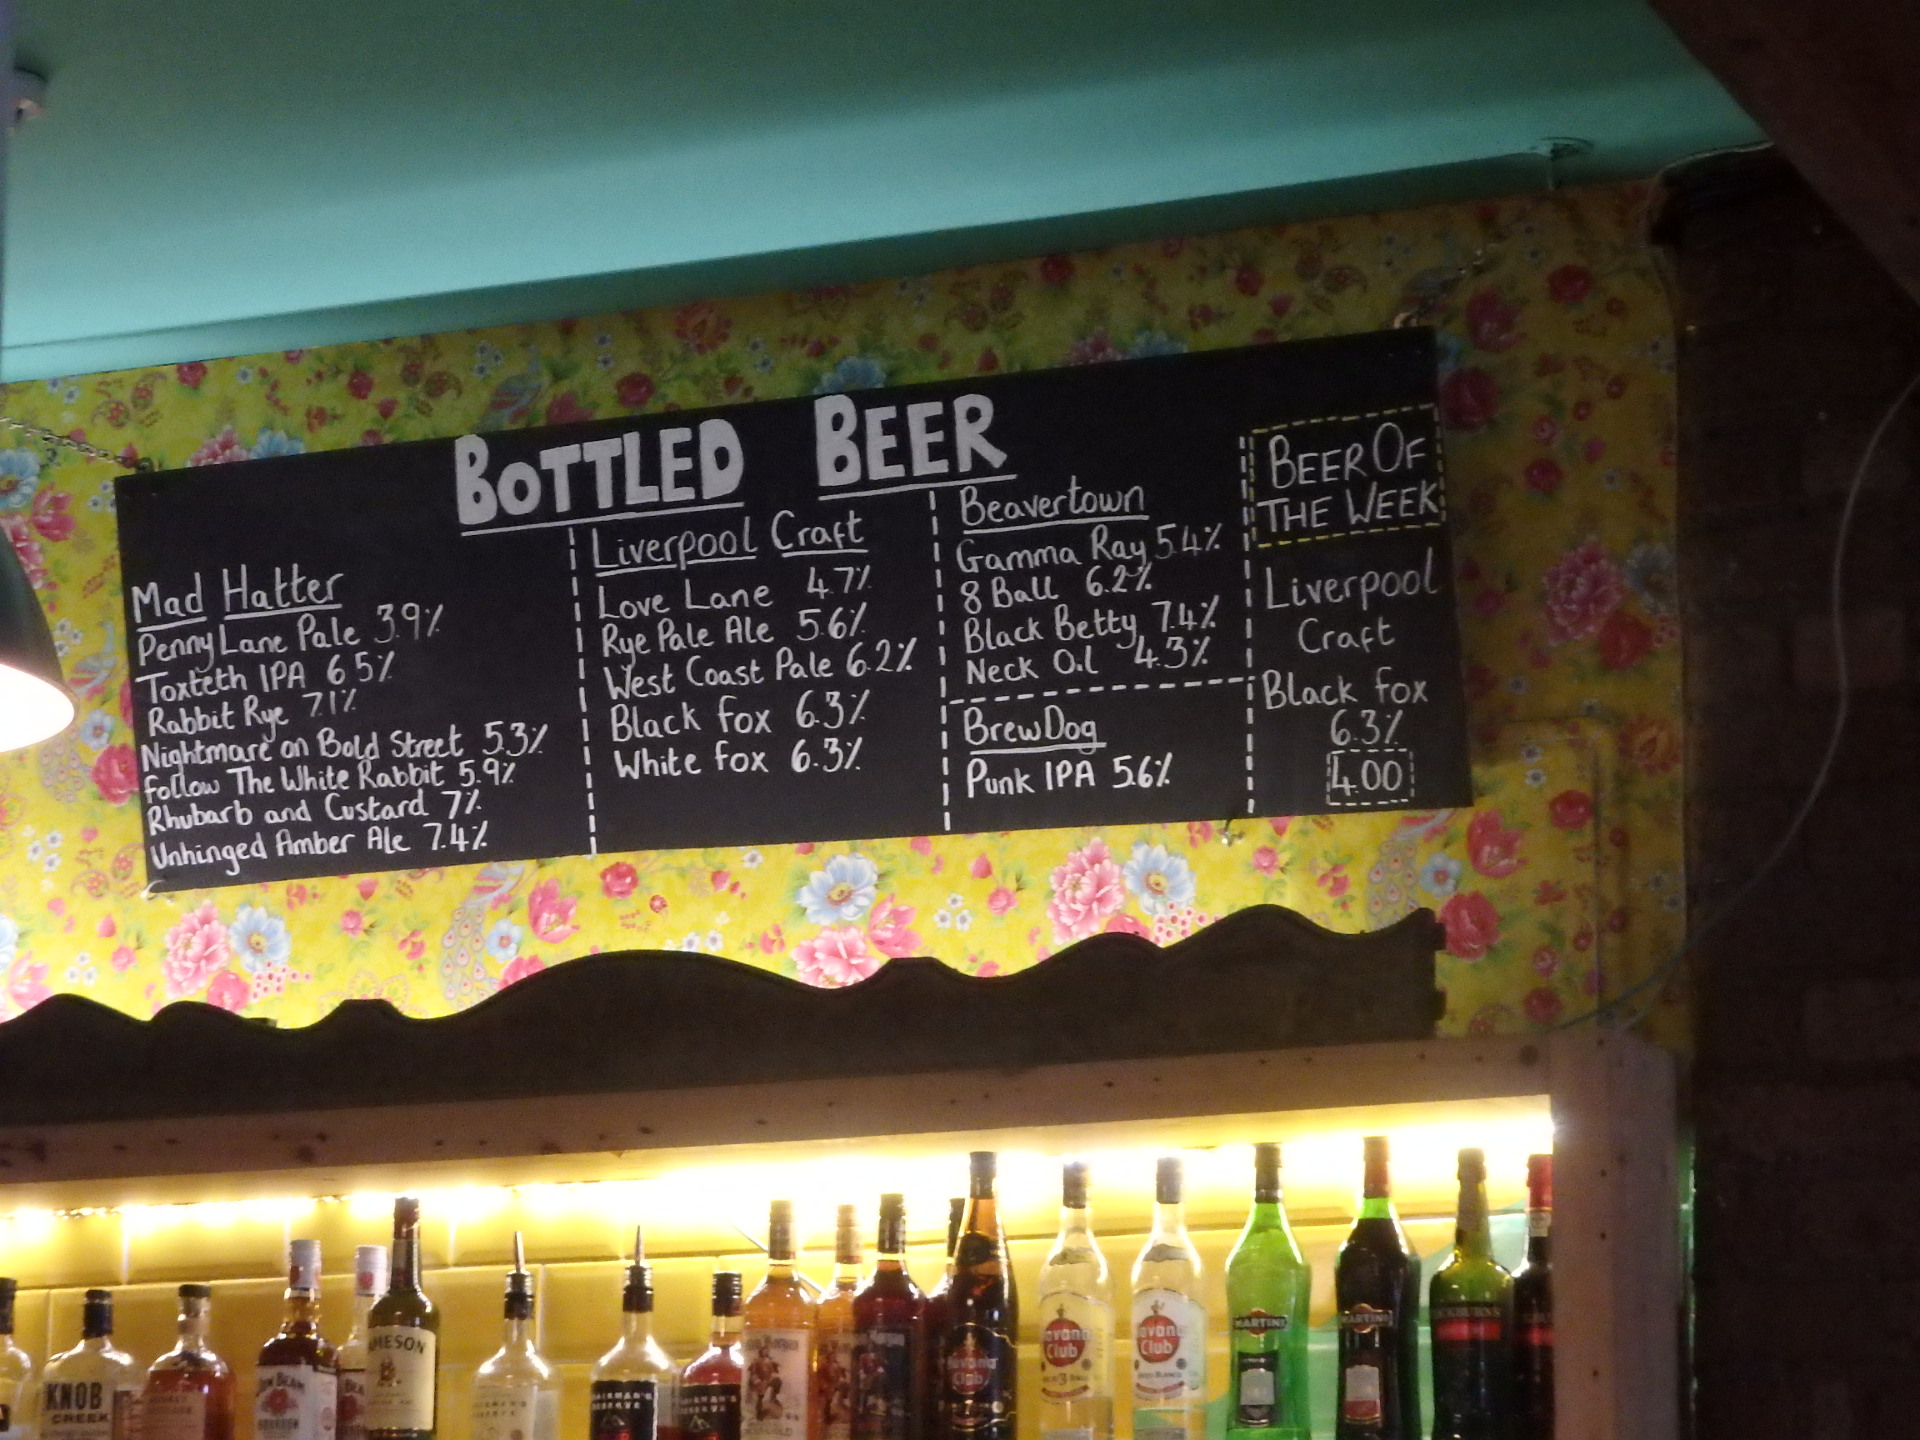 BOTTLED BEER
Mad Hatter
Penny Lane Pale 3.9%
Toxteth IPA 6.5%
Rabbit Rye 7.1%
Nightmare on Bold Street 5.3%
Follow The White Rabbit 5.9%
Rhubarb and Custard 7%
Unhinged Amber Ale 7.4%
Liverpool Craft
Love Lane 4.7%
Rye Pale Ale 5.6%
West Coast Pale 6.2%
Black Fox 6.3%
White Fox 6.3%
Beavertown
Gamma Ray 5.4%
8 Ball 6.2%
Black Betty 7.4%
Neck Oil 4.3%
BrewDog
Punk IPA 5.6%
BEER OF
THE WEEK
Liverpool
Craft
Black Fox
6.3%
4.00
KNOB
CREEK
JIM BEAM
BOURBON
BEAM
JAMESON
Havana
Club
Havana
Club
Havana
Club
MARTINI
MARTINI